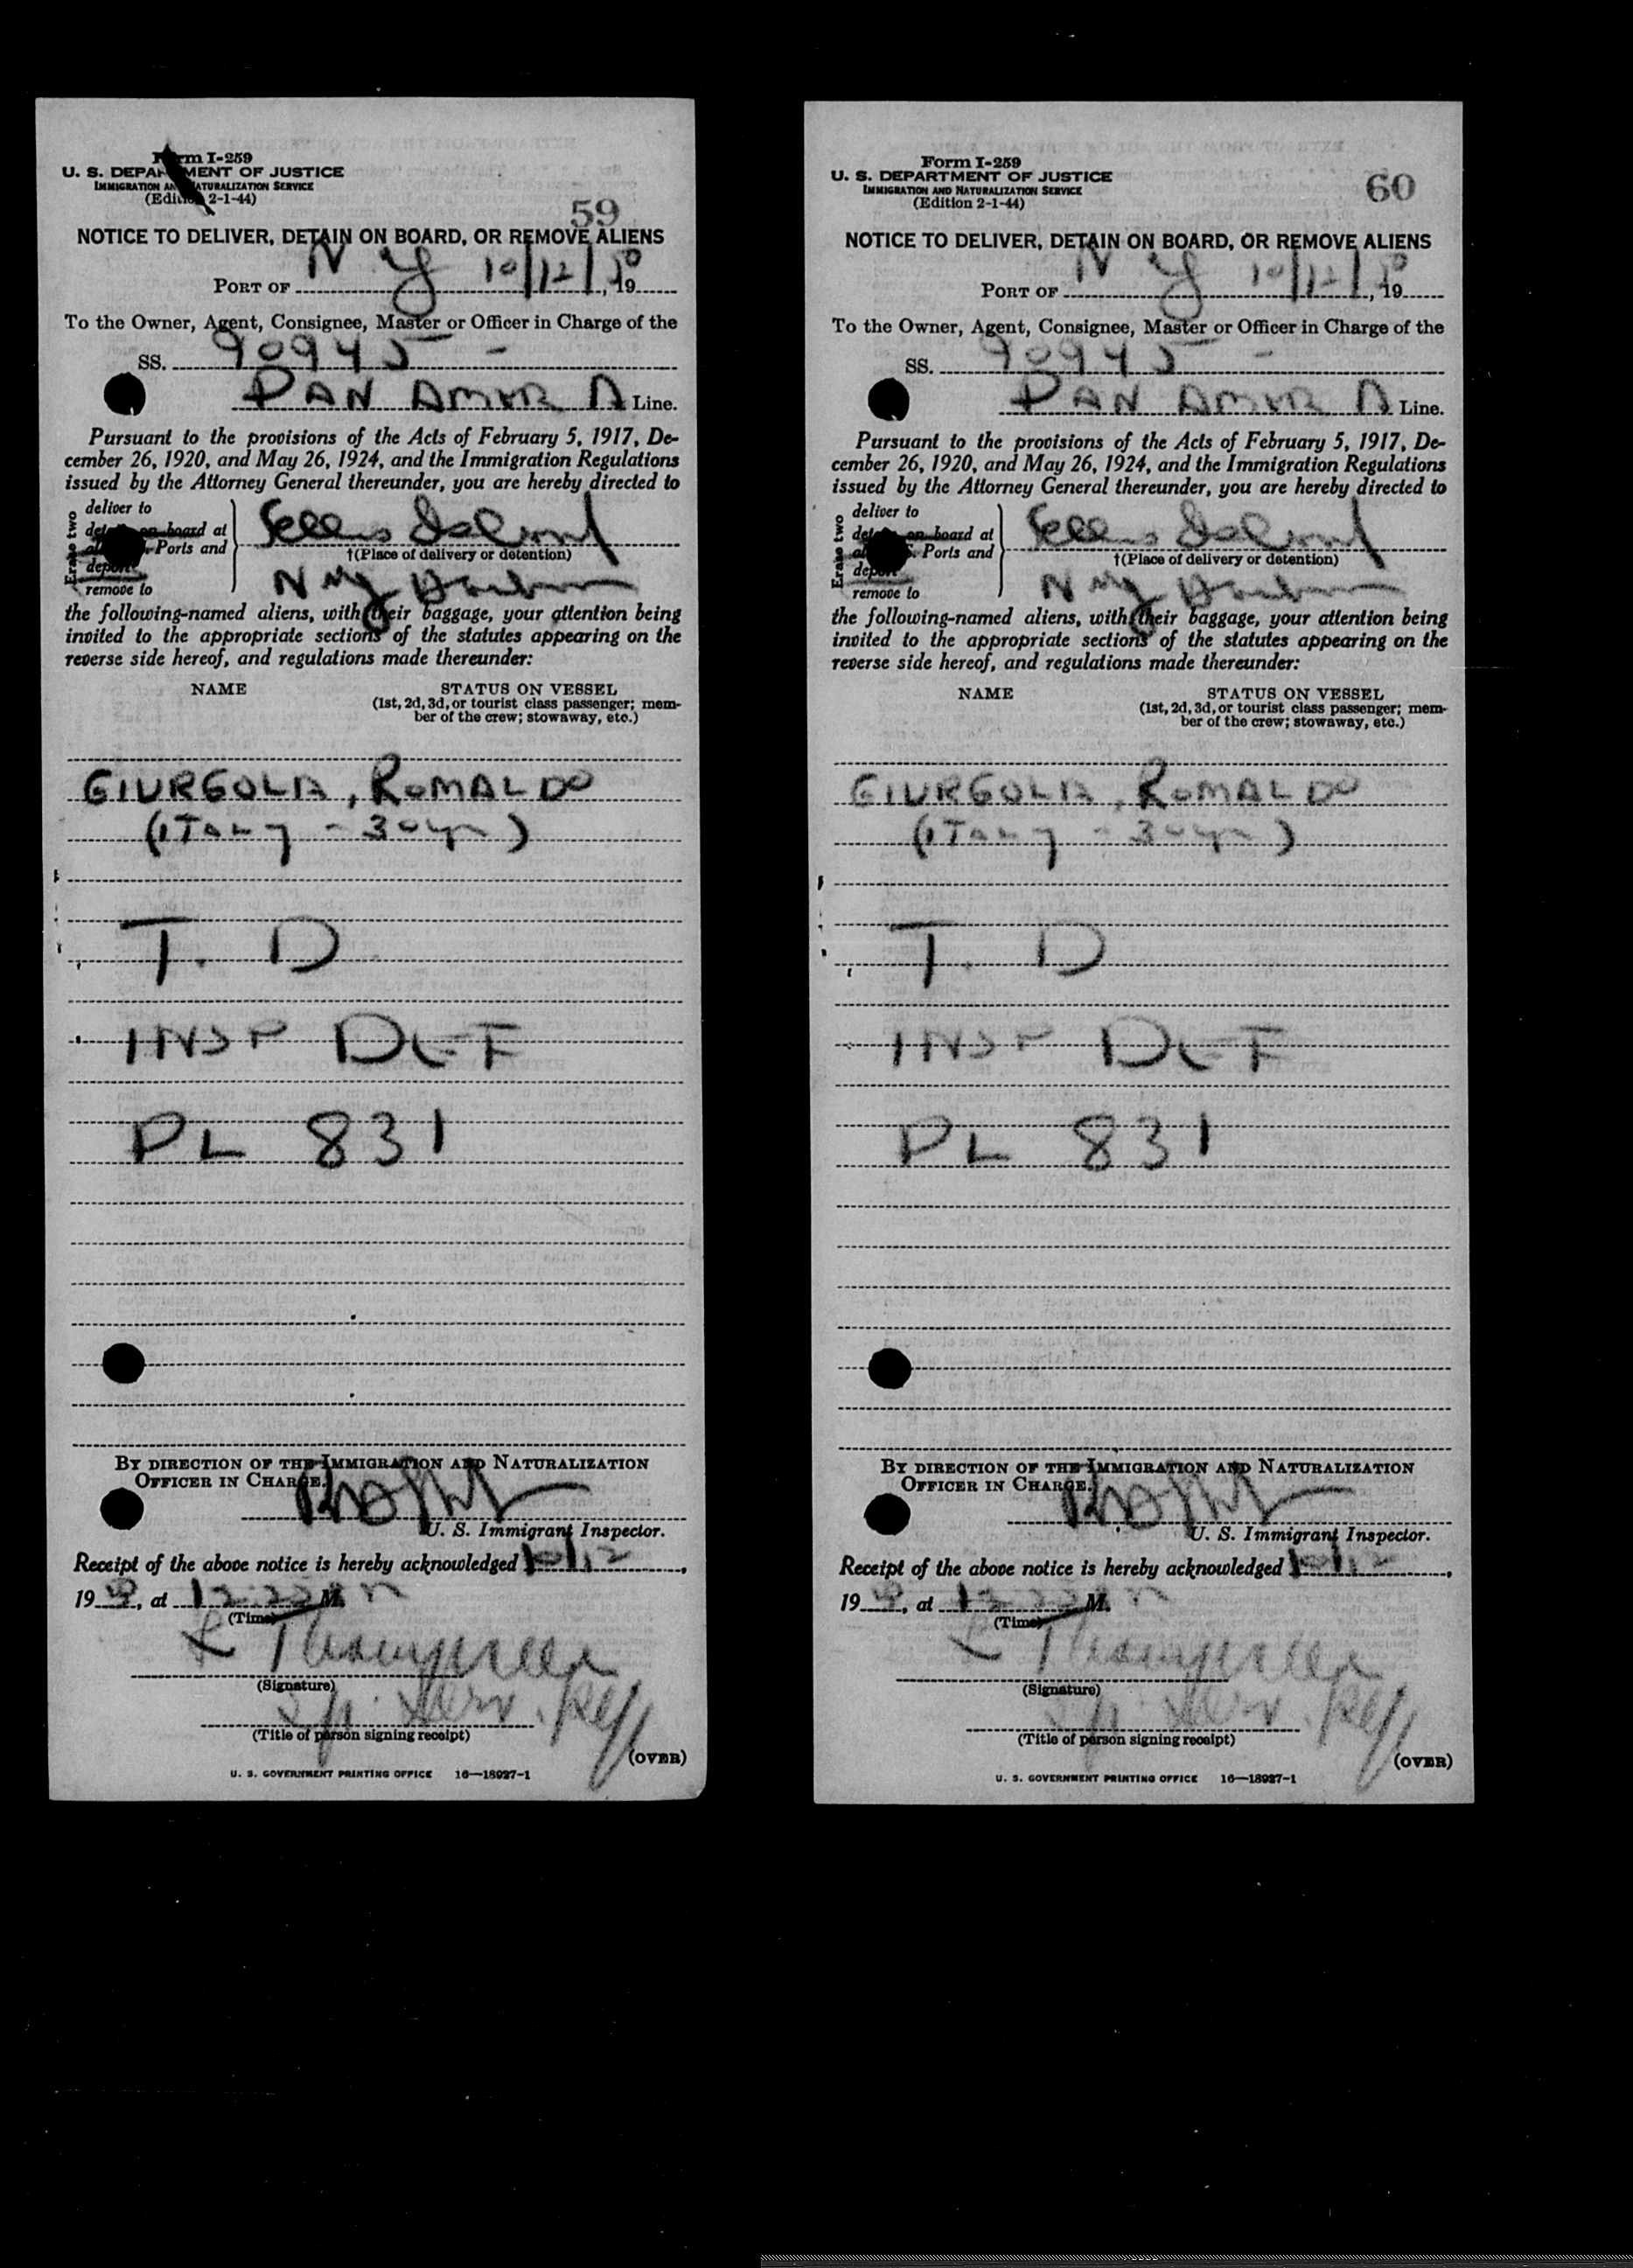 Form I-259
U. S. DEPARTMENT OF JUSTICE
IMMIGRATION AND NATURALIZATION SERVICE
(Edition 2-1-44)
59
NOTICE TO DELIVER, DETAIN ON BOARD, OR REMOVE ALIENS
PORT OF N Y 10/12/50, 19
To the Owner, Agent, Consignee, Master or Officer in Charge of the
SS. 90945 -
PAN AMER A Line.
Pursuant to the provisions of the Acts of February 5, 1917, De-
cember 26, 1920, and May 26, 1924, and the Immigration Regulations
issued by the Attorney General thereunder, you are hereby directed to
Erase two
deliver to
detain on board at
all U. S. Ports and
deport
remove to
Ellis Island
†(Place of delivery or detention)
N Y Harbor
the following-named aliens, with their baggage, your attention being
invited to the appropriate sections of the statutes appearing on the
reverse side hereof, and regulations made thereunder:
NAME STATUS ON VESSEL
(1st, 2d, 3d, or tourist class passenger; mem-
ber of the crew; stowaway, etc.)
GIURGOLA, ROMALDO
(ITALY - 30 yrs)
T. D
INSP DEF
PL 831
BY DIRECTION OF THE IMMIGRATION AND NATURALIZATION
OFFICER IN CHARGE.
U. S. Immigrant Inspector.
Receipt of the above notice is hereby acknowledged 10/12,
19 , at M.
(Time)
(Signature)
Serv. Rep
(Title of person signing receipt)
(OVER)
U. S. GOVERNMENT PRINTING OFFICE 16—18927-1
Form I-259
U. S. DEPARTMENT OF JUSTICE
IMMIGRATION AND NATURALIZATION SERVICE
(Edition 2-1-44)
60
NOTICE TO DELIVER, DETAIN ON BOARD, OR REMOVE ALIENS
PORT OF N Y 10/12/50, 19
To the Owner, Agent, Consignee, Master or Officer in Charge of the
SS. 90945 -
PAN AMER A Line.
Pursuant to the provisions of the Acts of February 5, 1917, De-
cember 26, 1920, and May 26, 1924, and the Immigration Regulations
issued by the Attorney General thereunder, you are hereby directed to
Erase two
deliver to
detain on board at
all U. S. Ports and
deport
remove to
Ellis Island
†(Place of delivery or detention)
N Y Harbor
the following-named aliens, with their baggage, your attention being
invited to the appropriate sections of the statutes appearing on the
reverse side hereof, and regulations made thereunder:
NAME STATUS ON VESSEL
(1st, 2d, 3d, or tourist class passenger; mem-
ber of the crew; stowaway, etc.)
GIURGOLA, ROMALDO
(ITALY - 30 yrs)
T. D
INSP DEF
PL 831
BY DIRECTION OF THE IMMIGRATION AND NATURALIZATION
OFFICER IN CHARGE.
U. S. Immigrant Inspector.
Receipt of the above notice is hereby acknowledged 10/12,
19 , at M.
(Time)
(Signature)
Serv. Rep
(Title of person signing receipt)
(OVER)
U. S. GOVERNMENT PRINTING OFFICE 16—18927-1